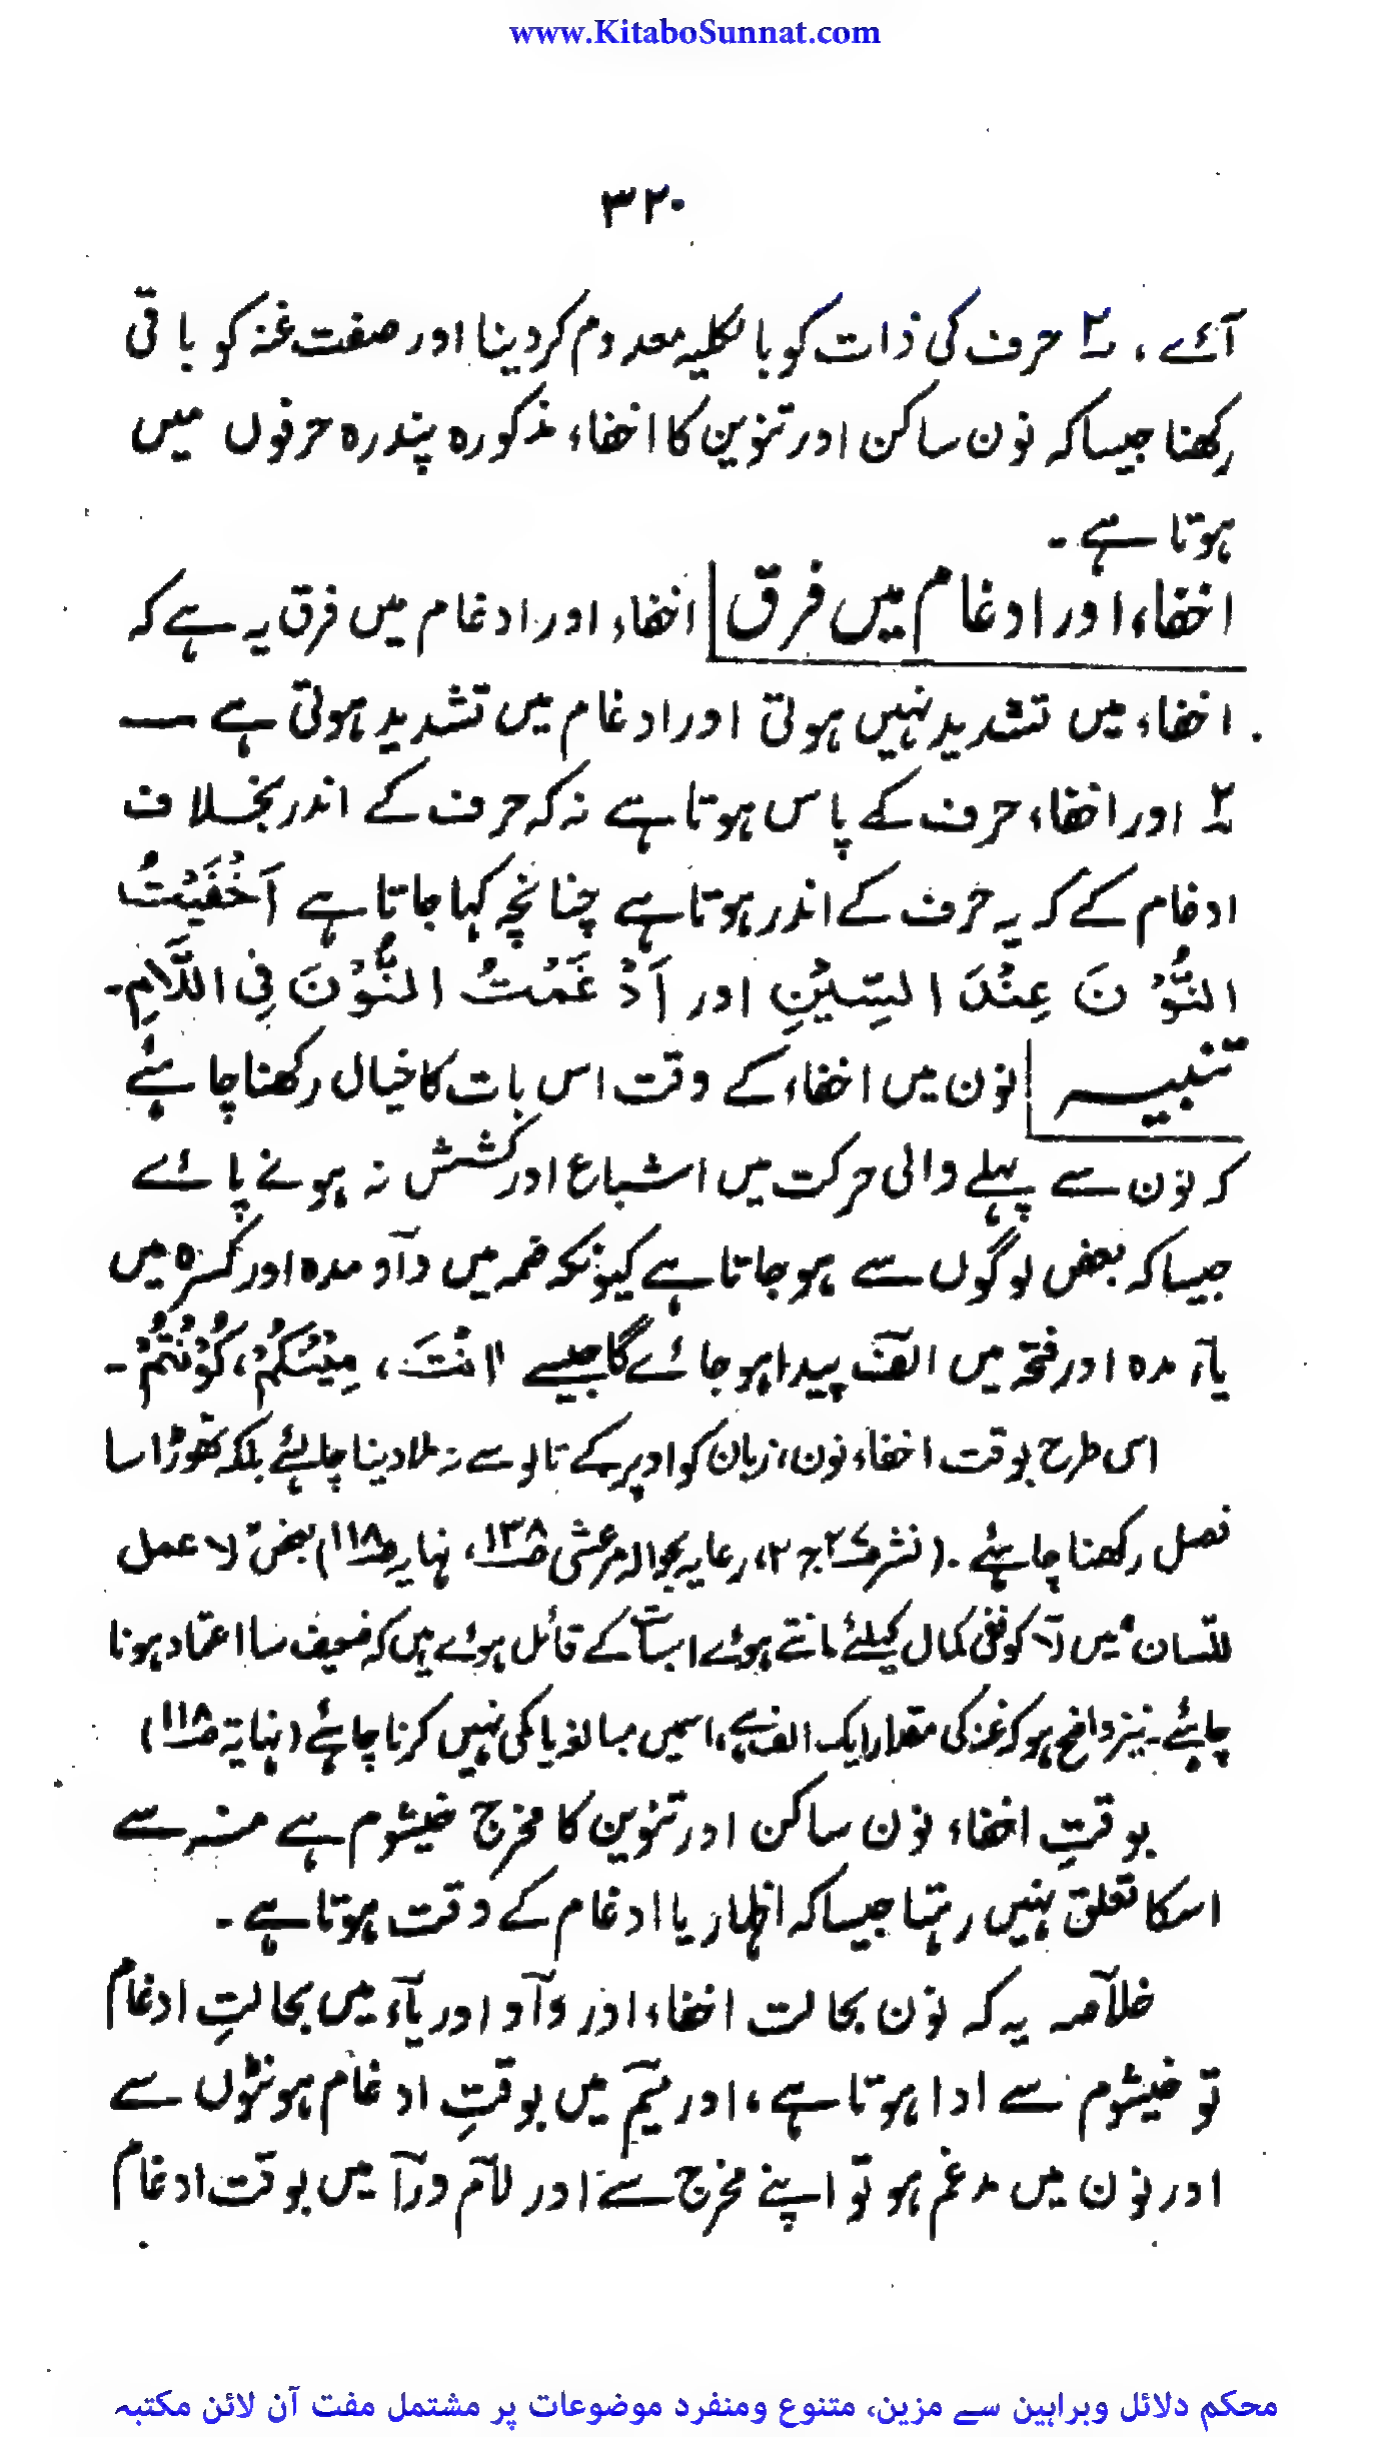 www.KitaboSunnat.com
۳۲۰
آئے، ۲؎ حرف کی ذات کو بالکلیہ معدوم کردینا اور صفت غنہ کو باقی
رکھنا جیسا کہ نون ساکن اور تنوین کا اخفاء مذکورہ پندرہ حرفوں میں
ہوتا ہے۔
اخفاء اور ادغام میں فرق اخفاء اور ادغام میں فرق یہ ہے کہ
اخفاء میں تشدید نہیں ہوتی اور ادغام میں تشدید ہوتی ہے —
۲؎ اور اخفاء حرف کے پاس ہوتا ہے نہ کہ حرف کے اندر بخلاف
ادغام کے کہ یہ حرف کے اندر ہوتا ہے چنانچہ کہا جاتا ہے اَخْفَيْتُ
النُّوْنَ عِنْدَ السِّيْنِ اور اَدْغَمْتُ النُّوْنَ فِى اللَّامِ۔
تنبیہ نون میں اخفاء کے وقت اس بات کا خیال رکھنا چاہئے
کہ نون سے پہلے والی حرکت میں اشباع اور کشش نہ ہونے پائے
جیسا کہ بعض لوگوں سے ہو جاتا ہے کیونکہ ضمہ میں واؤ مدہ اور کسرہ میں
یاء مدہ اور فتحہ میں الف پیدا ہو جائے گا جیسے اانْتَ، مِيْنْكُمْ، كُوْنْتُمْ۔
اسی طرح بوقت اخفاء نون، زبان کو اوپر کے تالو سے نہ ملا دینا چاہئے بلکہ تھوڑا سا
فصل رکھنا چاہئے۔ (نشر ص۲۷ ج۲، رعایہ بحوالہ مرعشی ص۱۳۸، نہایہ ص۱۱۸) بعض لا عمل
للسان میں لا کو نفی کمال کیلئے مانتے ہوئے اسبات کے قائل ہوئے ہیں کہ ضعیف سا اعتماد ہونا
چاہئے۔ نیز واضح ہو کہ غنہ کی مقدار ایک الف ہے، اسمیں مبالغہ یا کمی نہیں کرنا چاہئے (نہایۃ ص۱۱۸)
بوقتِ اخفاء نون ساکن اور تنوین کا مخرج خیشوم ہے منہ سے
اسکا تعلق نہیں رہتا جیسا کہ اظہار یا ادغام کے وقت ہوتا ہے۔
خلاصہ یہ کہ نون بحالت اخفاء اور واؤ اور یاء میں بحالتِ ادغام
تو خیشوم سے ادا ہوتا ہے، اور میم میں بوقتِ ادغام ہونٹوں سے
اور نون میں مدغم ہو تو اپنے مخرج سے اور لام و را میں بوقت ادغام
محکم دلائل وبراہین سے مزین، متنوع ومنفرد موضوعات پر مشتمل مفت آن لائن مکتبہ